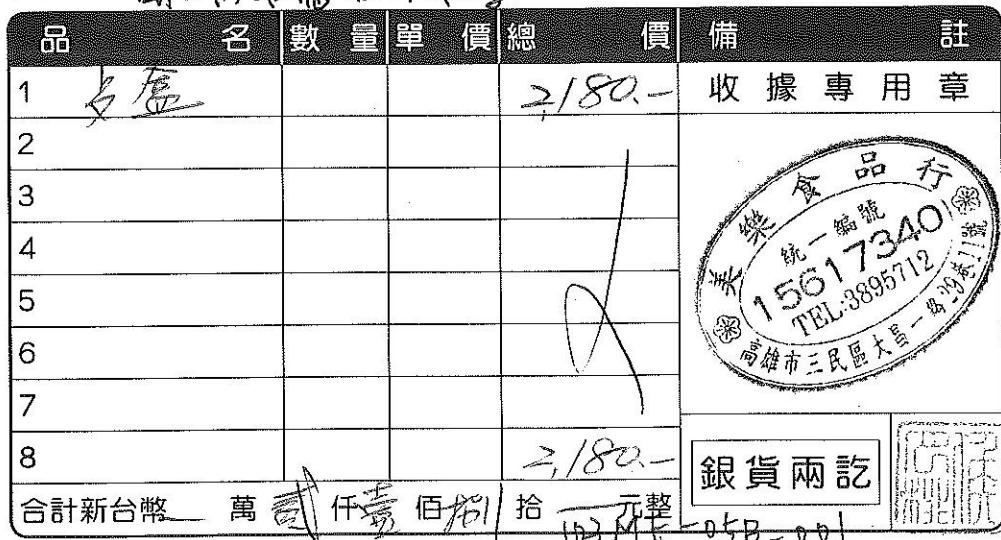 品名 數量 單價 總價 備註
1 2,180.- 收據專用章
2
3
4
5
6
7
8 2,180.-
美樂食品行
統一編號
15617340
TEL:3895712
高雄市三民區大昌一路29巷11號
銀貨兩訖
合計新台幣 萬 貳 仟 壹 佰 捌 拾 元整